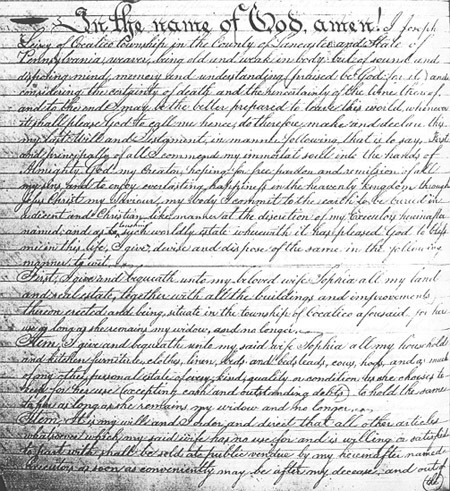 In the name of God, amen! I Joseph
of Cocalico township in the County of Lancaster and State of
Pennsylvania, weaver, being old and weak in body, but of sound and
disposing mind, memory and understanding (praised be God for it) and
considering the certainty of death and the uncertainty of the time thereof,
and to the end I may be the better prepared to leave this world, whenever
it shall please God to call me hence, do therefore, make and declare this
my last Will and Testament, in manner following, that is to say, First
and principally of all I commend my immortal soul into the hands of
Almighty God my Creator, hoping for free pardon and remission of all
my sins, and to enjoy everlasting happiness in the heavenly kingdom through
Jesus Christ my Saviour, my body I commit to the earth to be buried in a
decent and Christian like manner at the discretion of my Executors hereinafter
named; and as to such worldly estate wherewith it has pleased God to bless
me in this life, I give, devise and dispose of the same in the following
manner, to wit,
First, I give and bequeath unto my beloved wife Sophia all my land
and real estate, together with all the buildings and improvements
thereon erected and being, situate in the township of Cocalico aforesaid, for her
use as long as she remains my widow, and no longer.
Item, I give and bequeath unto my said wife Sophia all my household
and kitchen furniture, clothes, linen, beds and bedsteads, cows, hogs, and as much
of my other personal estate of every kind, quality or condition as she chooses to
keep for her use (excepting cash and outstanding debts) to hold the same
to her as long as she remains my widow and no longer.
Item, It is my will and I order and direct that all other articles
whatsoever which my said wife has no use for and is willing or satisfied
to part with shall be sold at public vendue by my hereinafter named
Executors as soon as conveniently may be after my decease, and out of